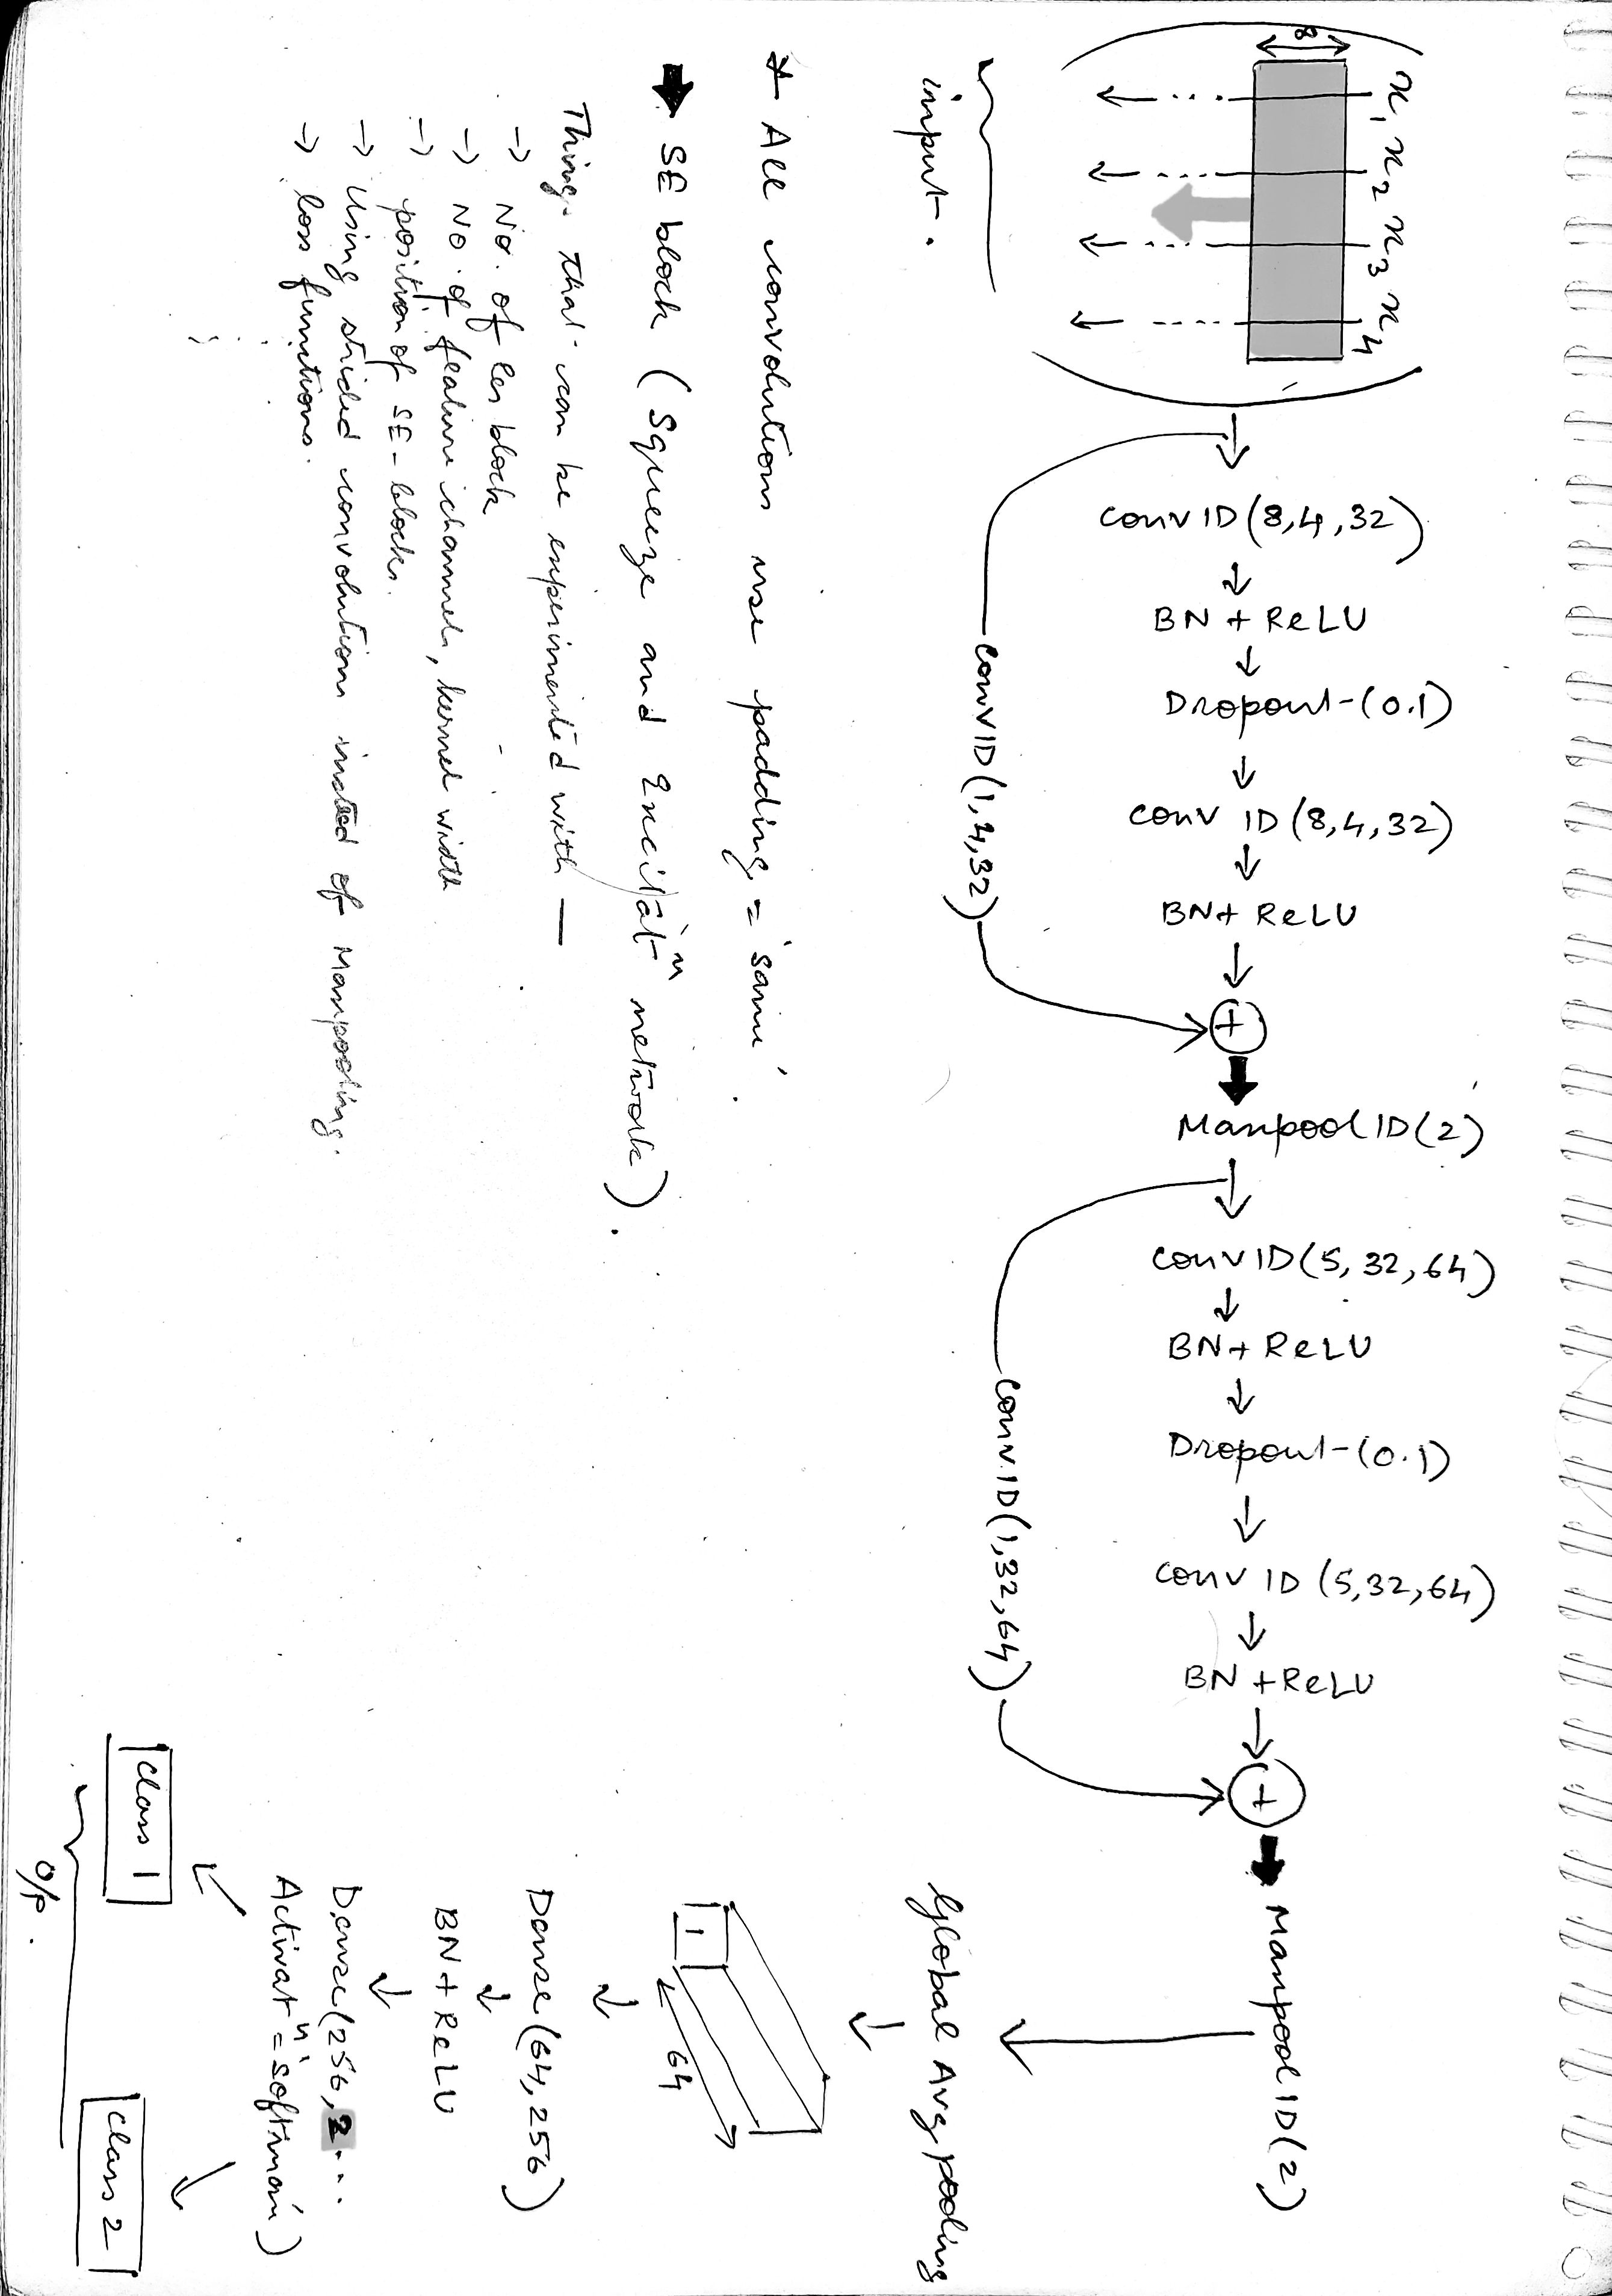 x₁ x₂ x₃ x₄
8
input.
Conv1D(8,4,32)
BN + ReLU
Dropout-(0.1)
Conv 1D (8,4,32)
BN + ReLU
+
Conv1D(1,4,32)
Maxpool 1D(2)
Conv1D(5,32,64)
BN + ReLU
Dropout-(0.1)
Conv 1D (5,32,64)
BN + ReLU
+
Conv.1D(1,32,64)
Maxpool 1D(2)
Global Avg pooling
1
64
Dense(64,256)
BN + ReLU
Dense(256, 2...
Activatⁿ = 'softmax')
Class 1
Class 2
O/p.
* All convolutions use padding = 'same'.
➡ SE block (Squeeze and Excitatⁿ network).
Things that can be experimented with —
→ No. of Res block
→ No. of feature channels, kernel width
→ position of SE-blocks.
→ Using strided convolutions insted of Maxpooling.
→ loss functions.